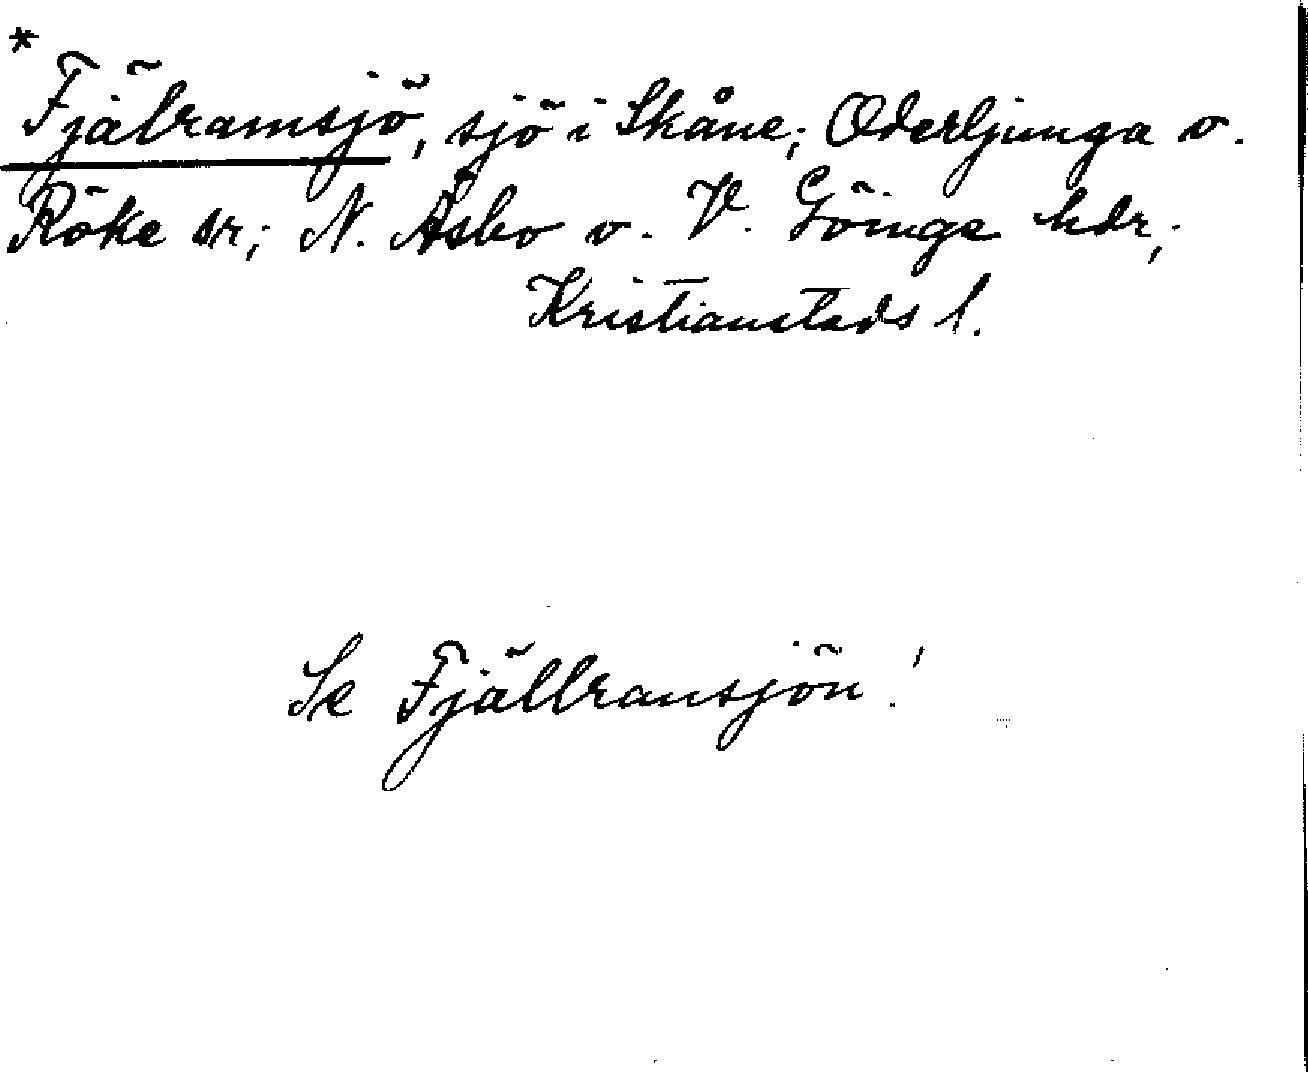 *
Fjälramsjö, sjö i Skåne; Oderljunga o.
Röke snr; N. Åsbo o. V. Göinge hdr,
Kristianstads l.
Se Fjällransjön!